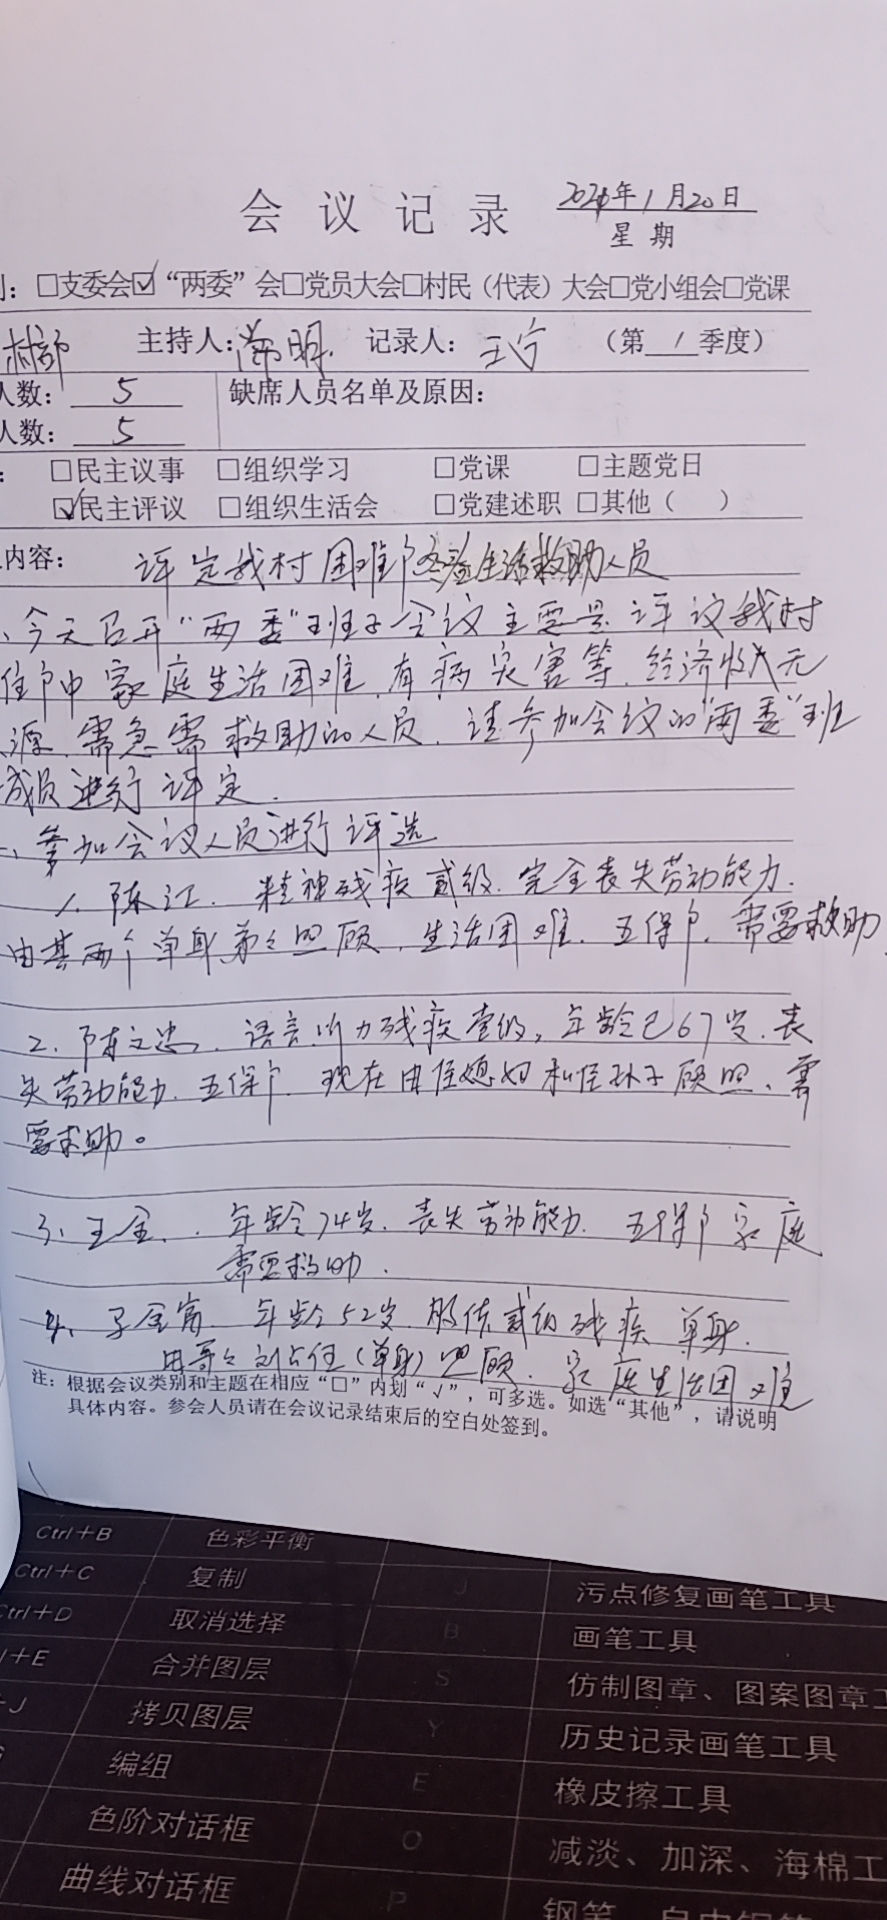 会议记录
年1月20日
星期
：□支委会☑“两委”会□党员大会□村民（代表）大会□党小组会□党课
村部 主持人： 明 记录人：王宁 （第 1 季度）
人数： 5 缺席人员名单及原因：
人数： 5
： □民主议事 □组织学习 □党课 □主题党日
☑民主评议 □组织生活会 □党建述职 □其他（ ）
内容： 评定我村困难户冬春生活救助人员
、今天召开“两委”班子会议主要是评议我村
住户中家庭生活困难、有病灾害等、经济收入无
源、需急需救助的人员、请参加会议的“两委”班
成员进行评定.
、参加会议人员进行评选
1. 陈江、精神残疾贰级、完全丧失劳动能力.
由其两个单身弟弟照顾、生活困难、五保户、需要救助
2. 陈文忠、语言听力残疾壹级，年龄已67岁、丧
失劳动能力、五保户、现在由侄媳妇和侄孙子顾照、需
要求助。
3、王金、年龄74岁、丧失劳动能力、五保户家庭
需要救助.
4、子金富、年龄52岁、肢体贰级残疾 单身.
由哥哥刘占住（单身）照顾、家庭生活困难
注：根据会议类别和主题在相应“□”内划“√”，可多选。如选“其他”，请说明
具体内容。参会人员请在会议记录结束后的空白处签到。
Ctrl+B 色彩平衡
Ctrl+C 复制 J 污点修复画笔工具
Ctrl+D 取消选择 B 画笔工具
+E 合并图层 S 仿制图章、图案图章工
+J 拷贝图层 Y 历史记录画笔工具
编组 E 橡皮擦工具
色阶对话框 O 减淡、加深、海棉工
曲线对话框 P 钢笔、自由钢笔